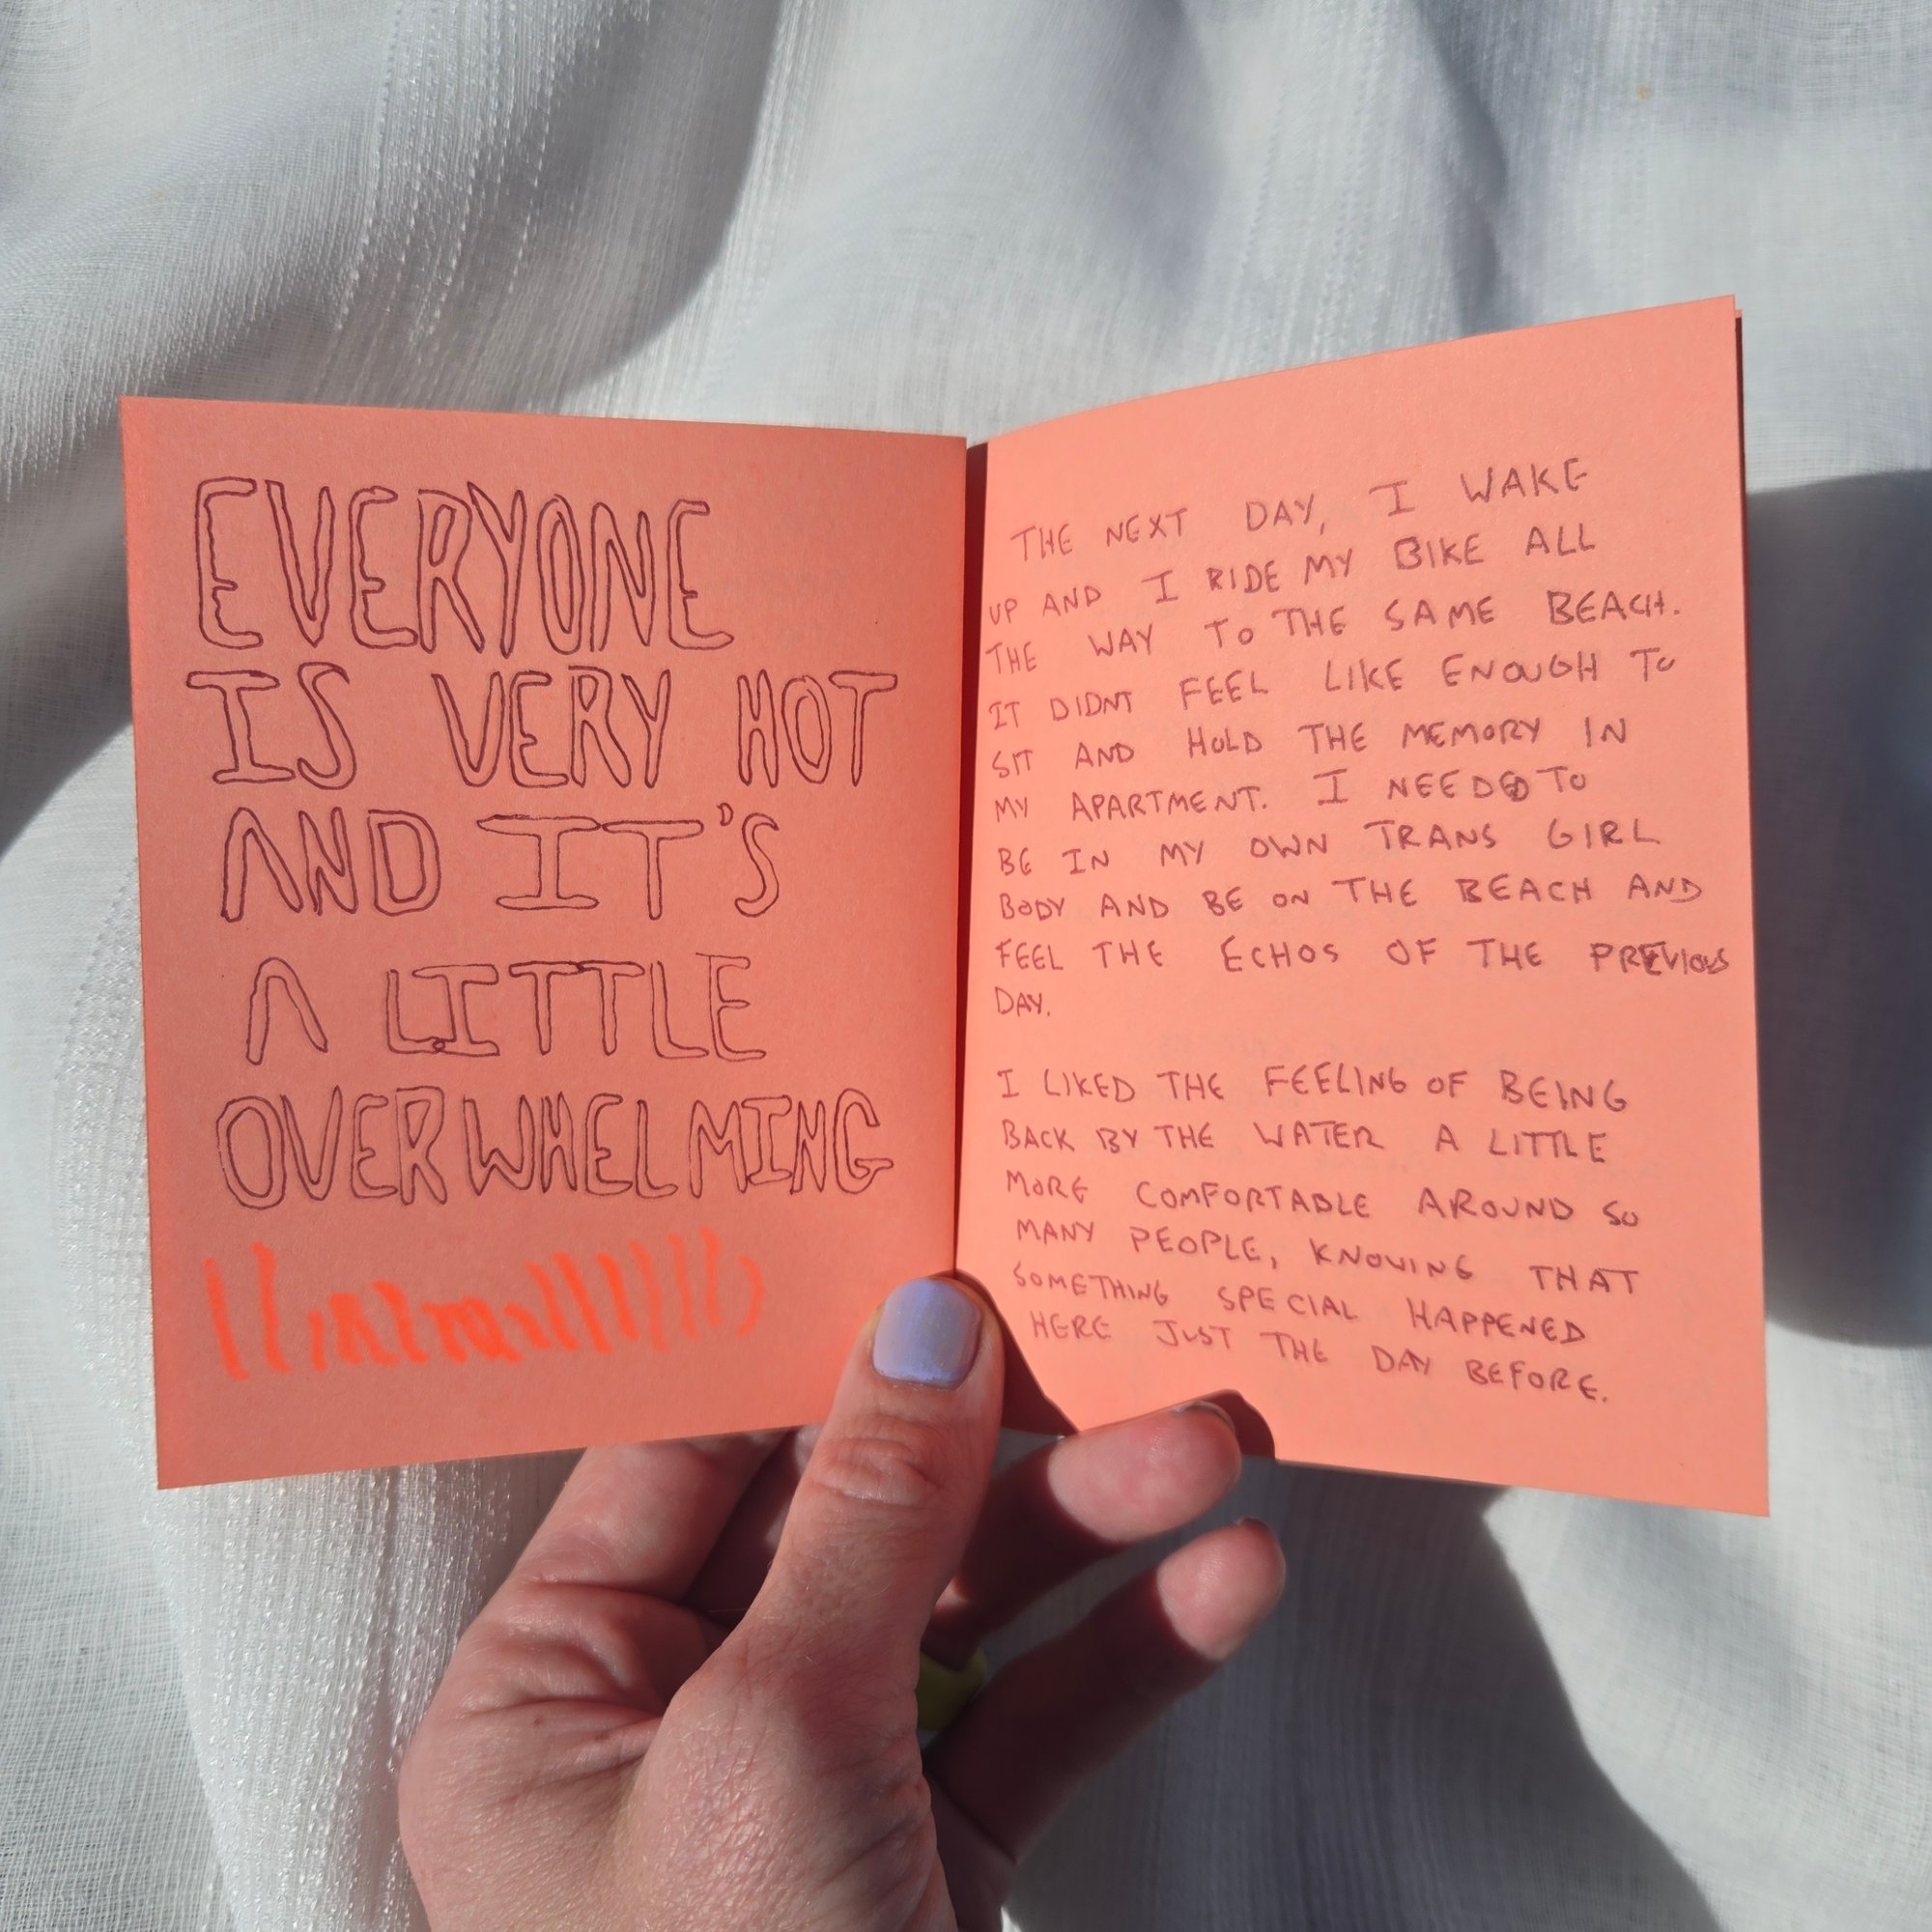 EVERYONE
IS VERY HOT
AND IT'S
A LITTLE
OVERWHELMING
THE NEXT DAY, I WAKE
UP AND I RIDE MY BIKE ALL
THE WAY TO THE SAME BEACH.
IT DIDNT FEEL LIKE ENOUGH TO
SIT AND HOLD THE MEMORY IN
MY APARTMENT. I NEEDED TO
BE IN MY OWN TRANS GIRL
BODY AND BE ON THE BEACH AND
FEEL THE ECHOS OF THE PREVIOUS
DAY.
I LIKED THE FEELING OF BEING
BACK BY THE WATER A LITTLE
MORE COMFORTABLE AROUND SO
MANY PEOPLE, KNOWING THAT
SOMETHING SPECIAL HAPPENED
HERE JUST THE DAY BEFORE.